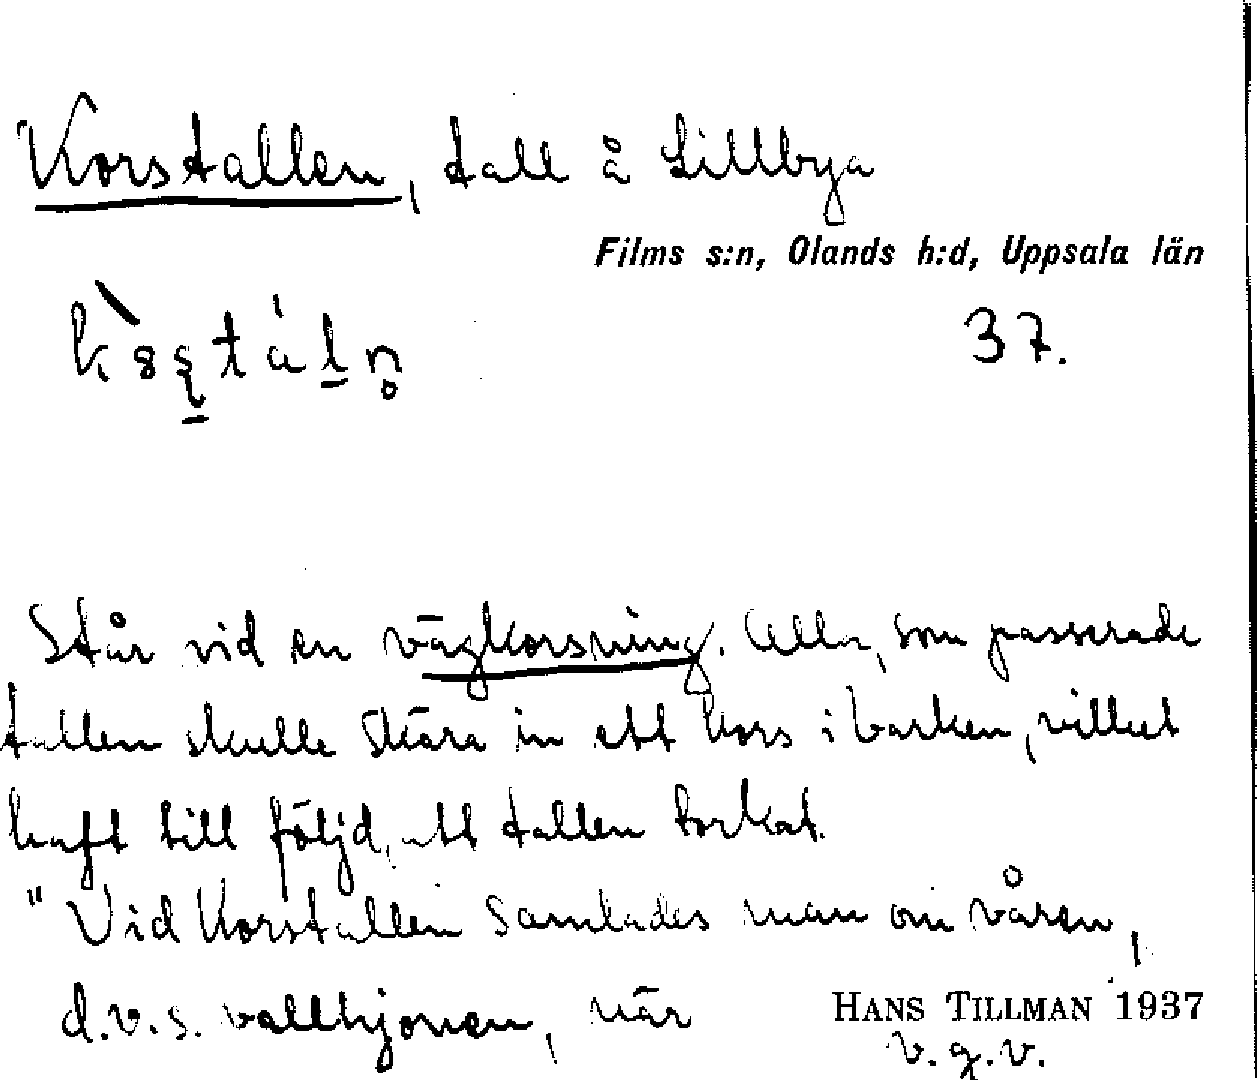 Korstallen, tall å Lillbya
Films s:n, Olands h:d, Uppsala län
37.
Står vid en vägkorsning. Alla, som passerade
tallen skulle skära in ett kors i barken, vilket
haft till följd, att tallen torkat.
"Vid Korstallen samlades man om våren,
d.v.s. vallhjonen, när
HANS TILLMAN 1937
v.g.v.